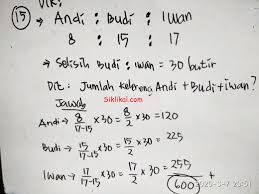 Dik:
15) → Andi : Budi : Iwan
8 : 15 : 17
→ Selisih Budi : iwan = 30 butir
Dit: Jumlah kelereng Andi + Budi + iwan ?
Jawab
Siklikol.com
Andi → 8/17-15 × 30 = 8/2 × 30 = 120
Budi → 15/17-15 × 30 = 15/2 × 30 = 225
Iwan → 17/17-15 × 30 = 17/2 × 30 = 255 +
600